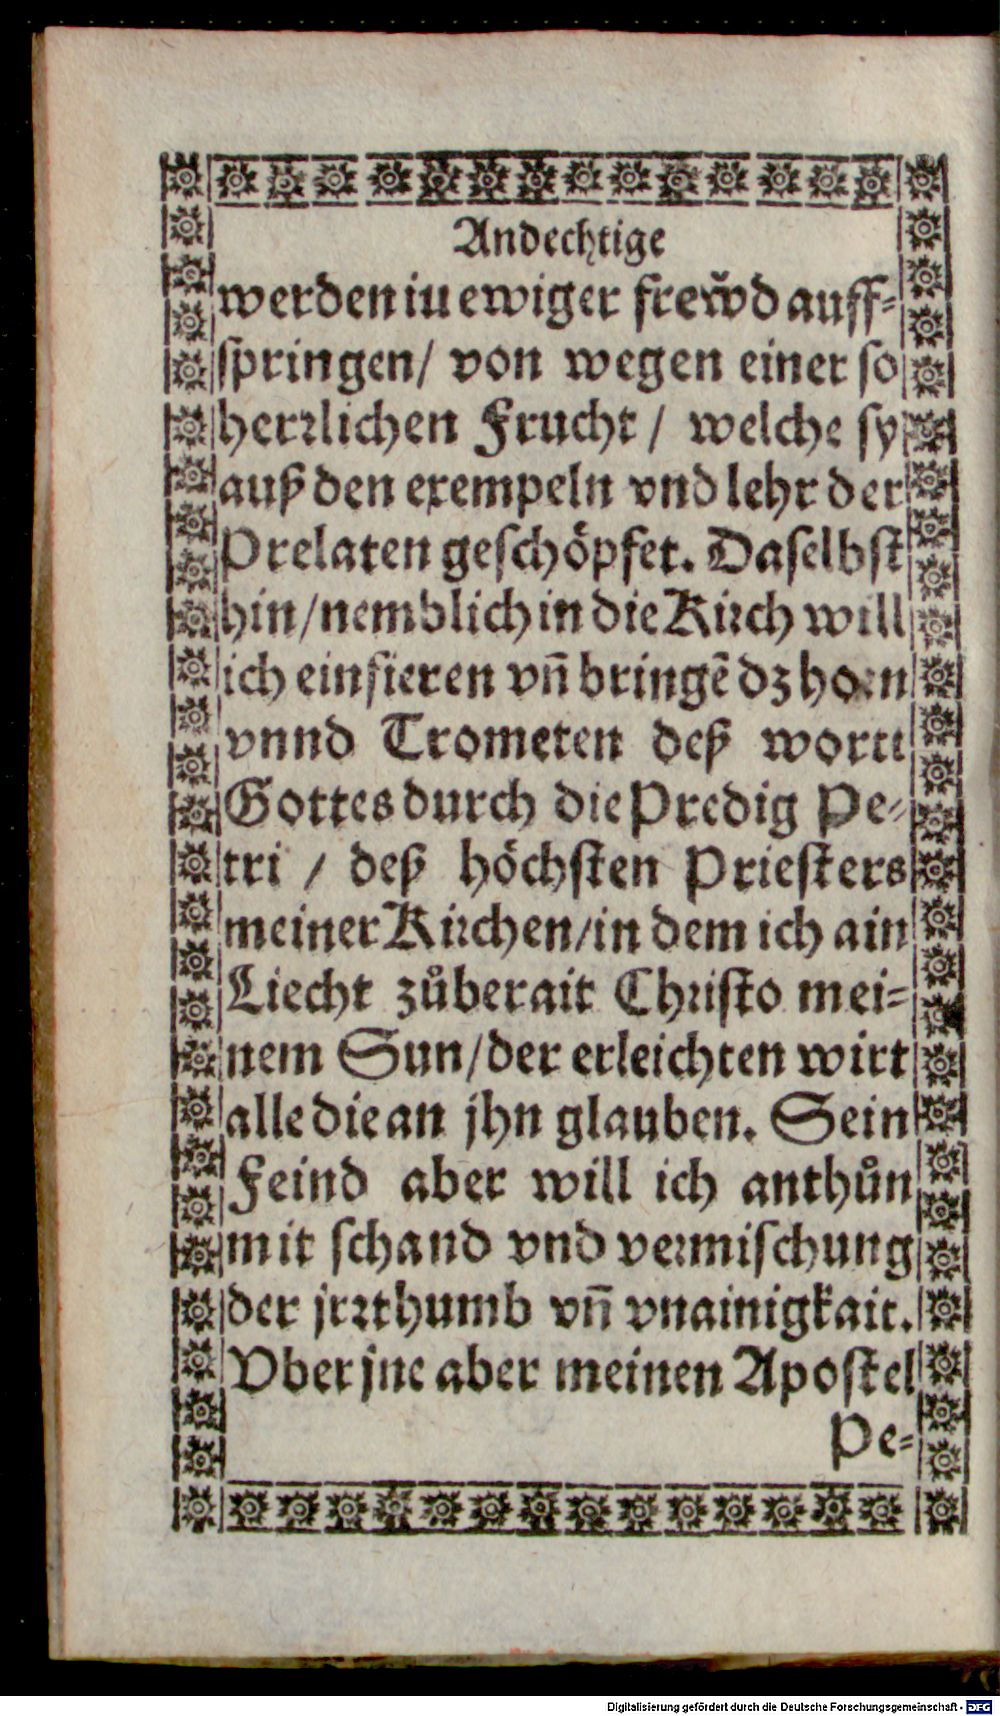 Andechtige
werden in ewiger frewͤd auff⸗
ſpringen/ von wegen einer ſo
herꝛlichen Frucht / welche ſy
auß den exempeln vnd lehr der
Prelaten geſchöpfet. Daſelbſt
hin/nemblich in die Kiꝛch will
ich einfieren vñ bringẽ dz hoꝛn
vnnd Trometen deß wortt
Gottes durch die Predig Pe⸗
tri / deß höchſten Prieſters
meiner Kiꝛchen/in dem ich ain
Liecht zůberait Chꝛiſto mei⸗
nem Sun/der erleichten wirt
alle die an jhn glauben. Sein
Feind aber will ich anthůn
mit ſchand vnd veꝛmiſchung
der jrꝛthumb vñ vnainigkait.
Vber jne aber meinen Apoſtel
Pe⸗
Digitalisierung gefördert durch die Deutsche Forschungsgemeinschaft - DFG